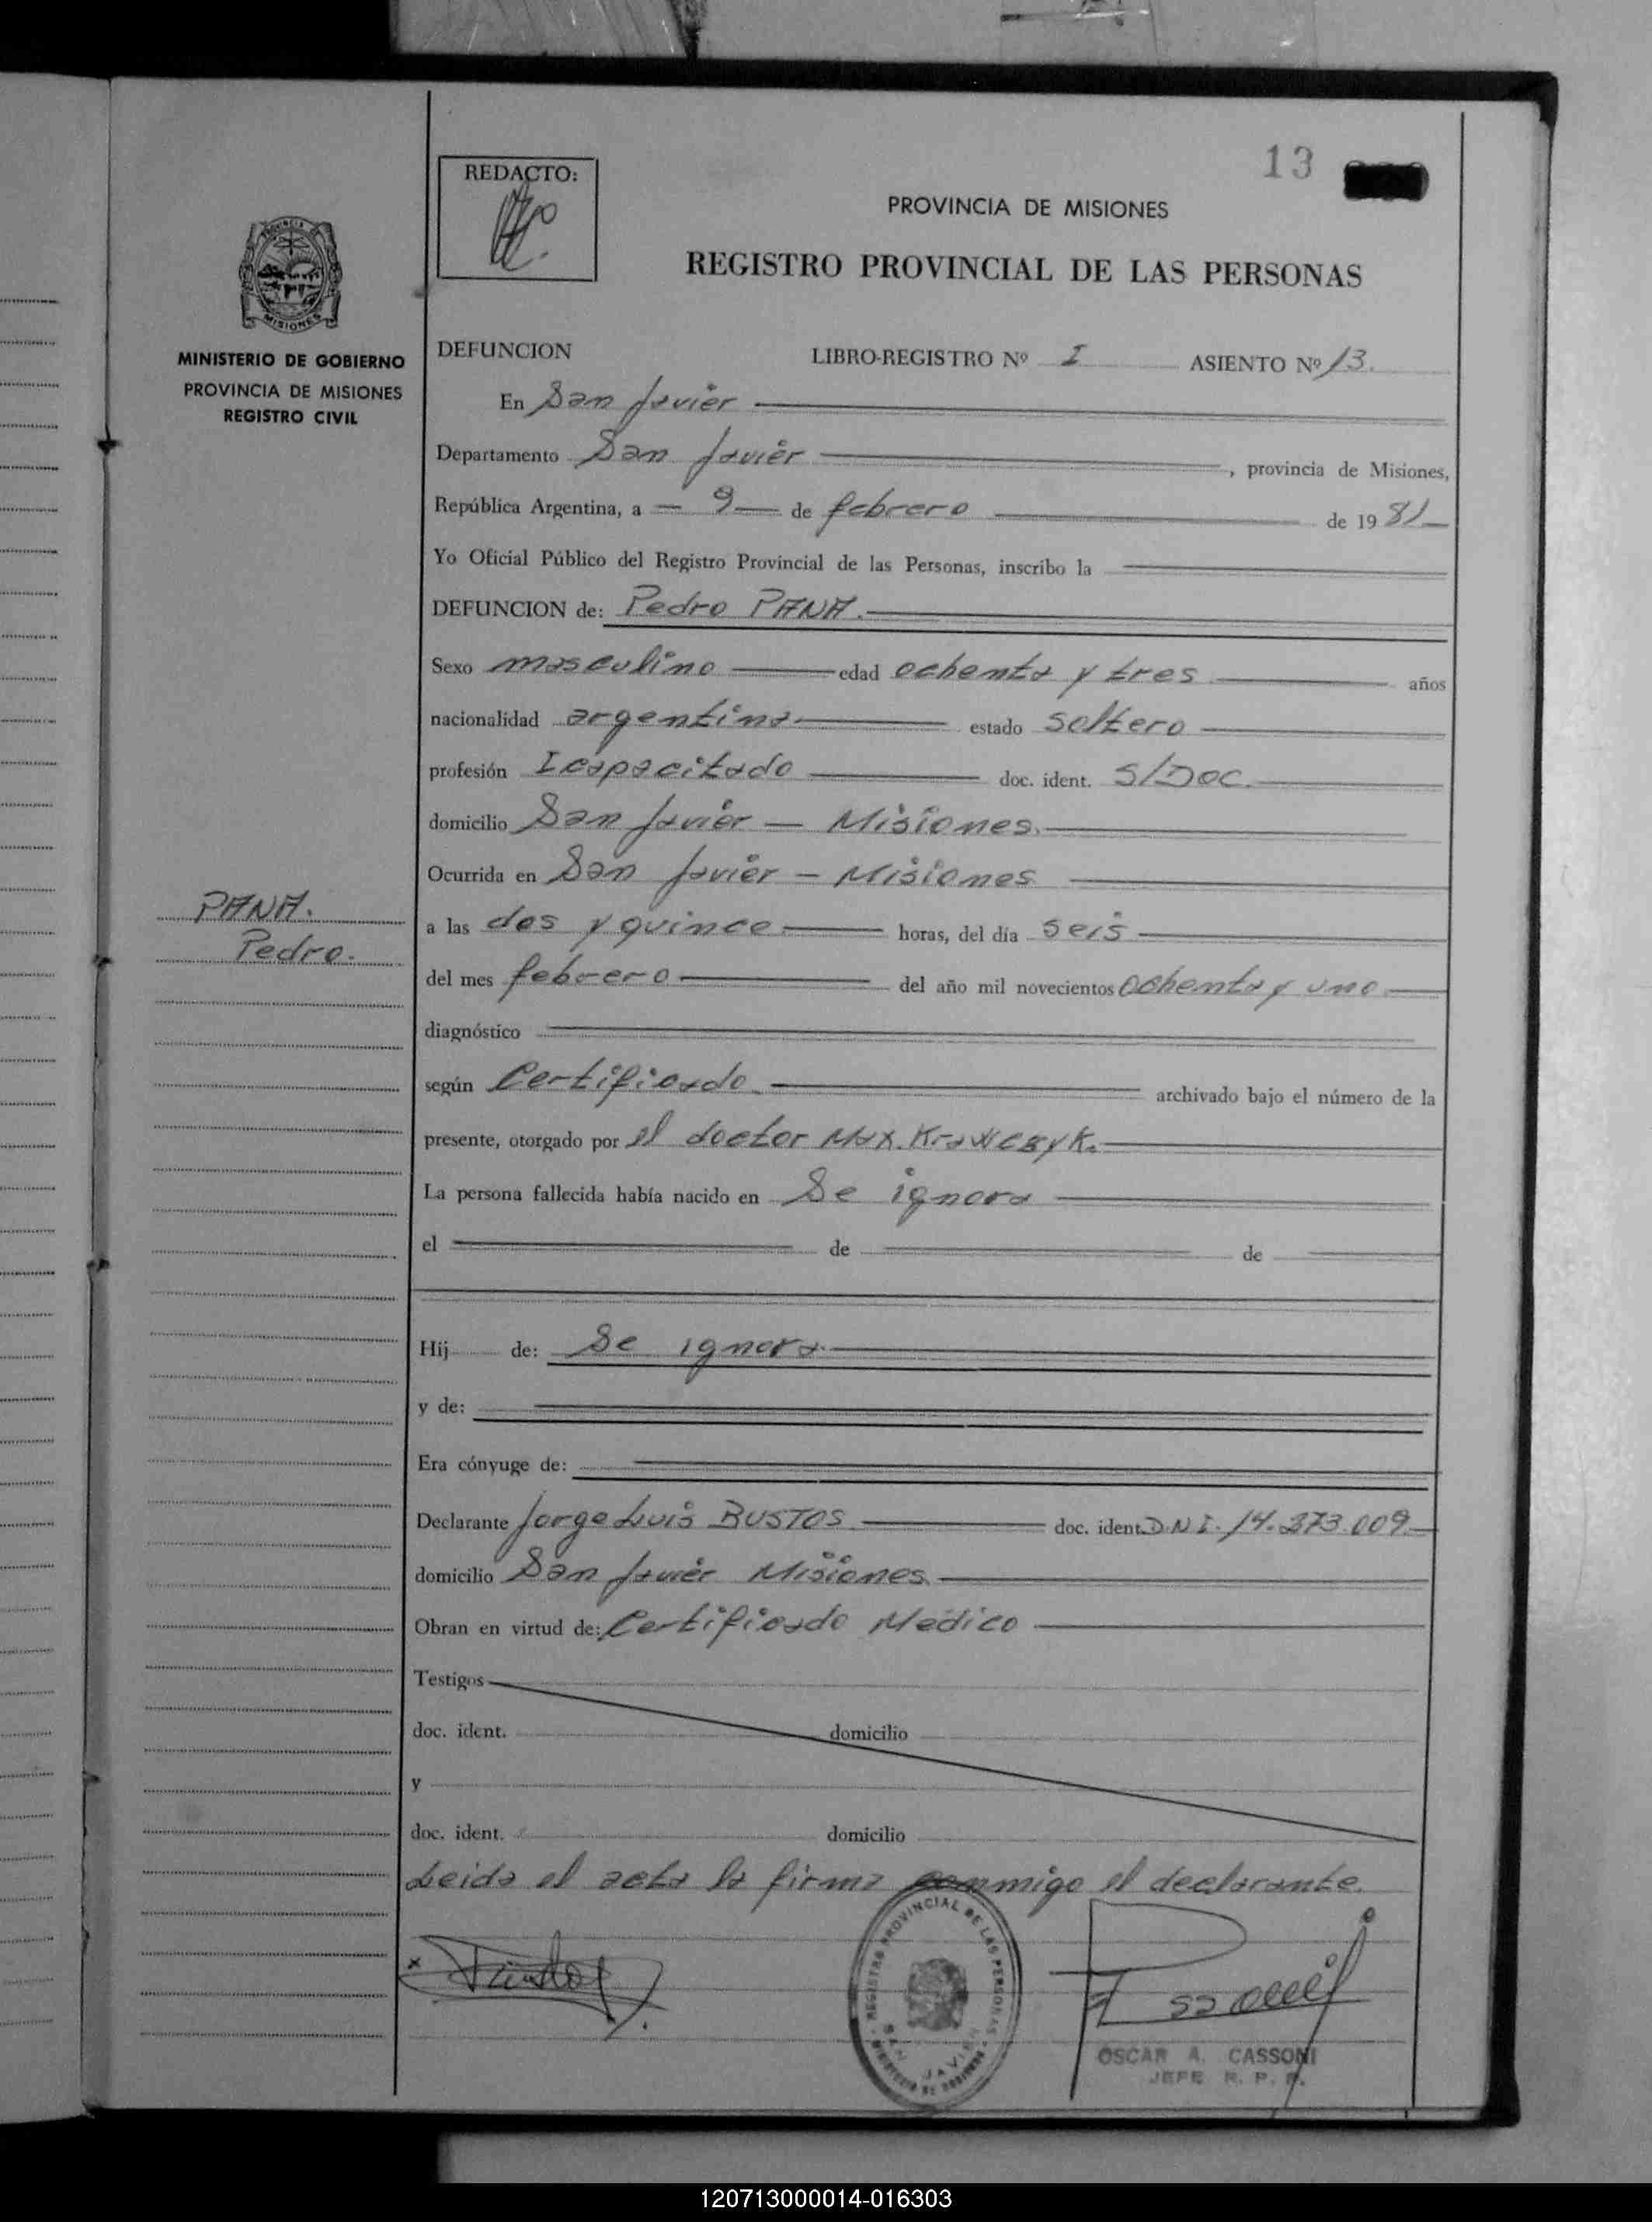 13
REDACTO:
PROVINCIA DE MISIONES
REGISTRO PROVINCIAL DE LAS PERSONAS
MISIONES
MINISTERIO DE GOBIERNO
PROVINCIA DE MISIONES
REGISTRO CIVIL
DEFUNCION LIBRO-REGISTRO Nº I ASIENTO Nº 13.
En San Javier
Departamento San Javier , provincia de Misiones,
República Argentina, a 9 de febrero de 19 81
Yo Oficial Público del Registro Provincial de las Personas, inscribo la
DEFUNCION de: Pedro PANA.
Sexo masculino edad ochenta y tres años
nacionalidad argentina estado soltero
profesión Icapacitado doc. ident. S/DOC.
domicilio San Javier - Misiones.
Ocurrida en San Javier - Misiones
PANA.
Pedro.
a las dos y quince horas, del día seis
del mes febrero del año mil novecientos ochenta y uno
diagnóstico
según Certificado archivado bajo el número de la
presente, otorgado por el doctor Max. Krawczyk.
La persona fallecida había nacido en Se ignora
el de de
Hij de: Se ignora
y de:
Era cónyuge de:
Declarante Jorge Luis BUSTOS doc. ident. D.N.I. 14.373.009
domicilio San Javier Misiones
Obran en virtud de: Certificado Medico
Testigos
doc. ident. domicilio
y
doc. ident. domicilio
Leida el acta la firma conmigo el declarante.
REGISTRO PROVINCIAL DE LAS PERSONAS
SAN JAVIER
OSCAR A. CASSONI
JEFE R. P. P.
120713000014-016303